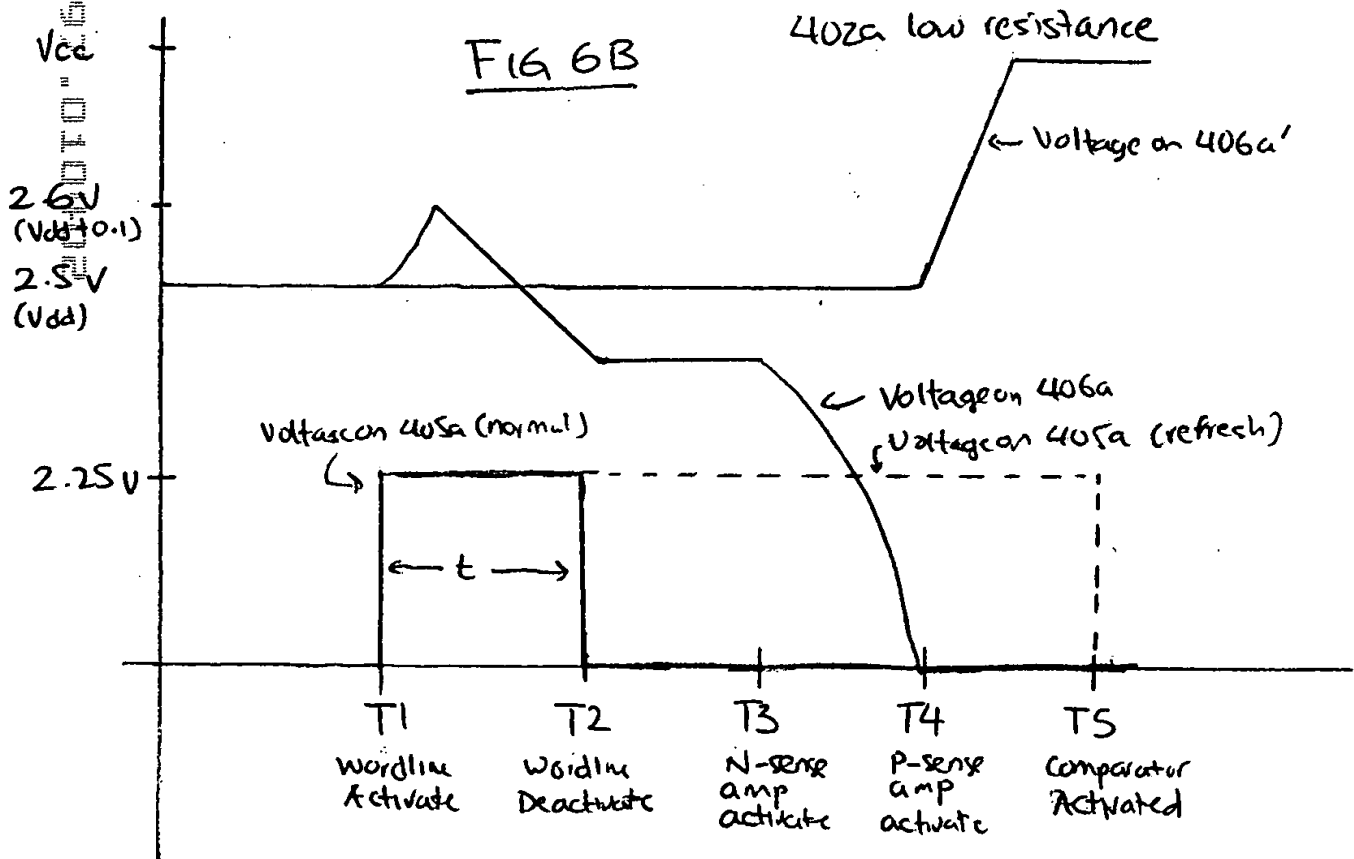 402a low resistance
FIG 6B
Vcc
← Voltage on 406a'
2.6V
(Vdd+0.1)
2.5V
(Vdd)
Voltage on 406a
Voltage on 405a (normal)
Voltage on 405a (refresh)
2.25V
← t →
T1
T2
T3
T4
T5
Wordline
Activate
Wordline
Deactivate
N-sense
amp
activate
P-sense
amp
activate
Comparator
Activated